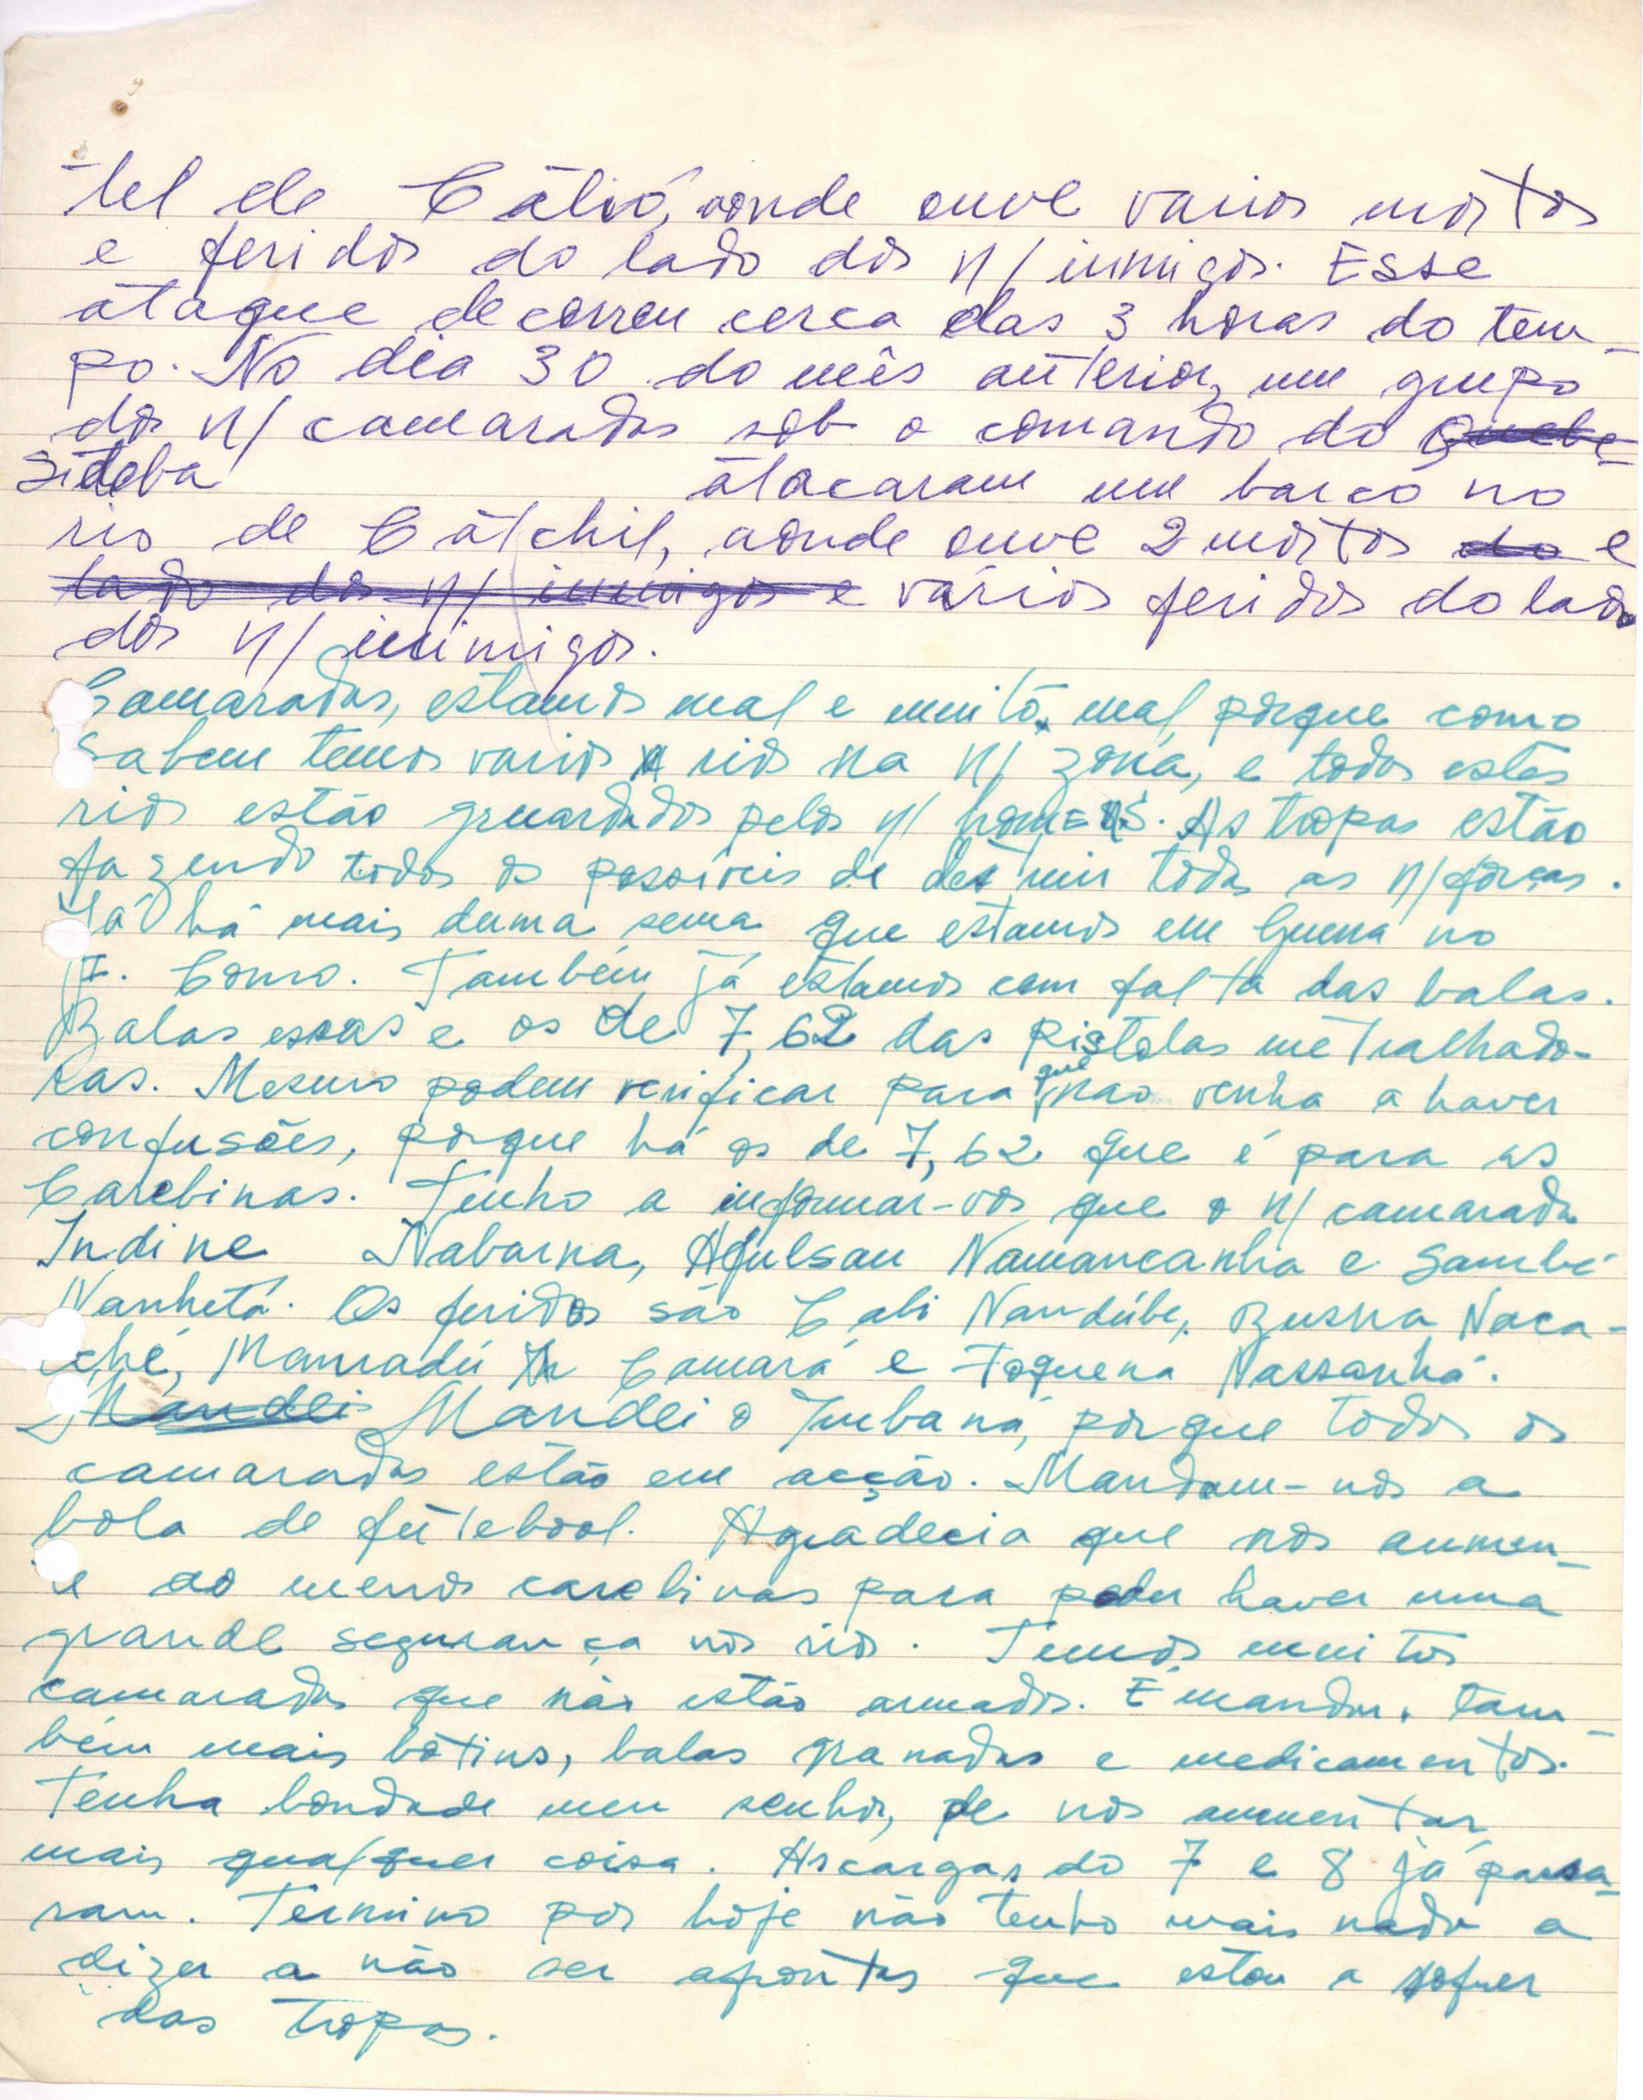 tel de Câtió, aonde ouve varios mortos
e feridos do lado dos n/ inimigos. Esse
ataque decorreu cerca das 3 horas do tem-
po. No dia 30 do mês anterior, um grupo
dos n/ camaradas sob o comando do
Sideba atacaram um barco no
rio de Câtchil, aonde ouve 2 mortos do e
lado dos n/ inimigos e vários feridos do lado
dos n/ inimigos.
Camaradas, estamos mal e muito mal, porque como
sabem temos varios rios na n/ zona, e todos estes
rios estão gruardados pelos n/ homens. As tropas estão
fazendo todos os possíveis de destruir todas as n/ forças.
Já há mais duma sema que estamos em Guerra no
I. Como. Também já estamos com falta das balas.
Balas essas e os de 7,62 das pistolas metralhado-
ras. Mesmo podem verificar para que não venha a haver
confusões, porque há os de 7,62 que é para as
Carebinas. Tenho a informar-vos que o n/ camarada
Indine Nabarna, Afulsan Namancanha e Sambé
Nanhetá. Os feridos são Cabi Nandúbe, Busna Naca-
ché, Mamadú Camará e Toquena Nassanhá.
Mandei Mandei o Imbaná, porque todos os
camaradas estão em acção. Mandam-nos a
bola de futebool. Agradecia que nos aumen-
e ao menos carebinas para poder haver uma
grande segurança nos rios. Temos muitos
camaradas que não estão armados. E mandar, tam-
bém mais bótins, balas granadas e medicamentos.
Tenha bondade meu senhor, de nos aumentar
mais qualquer coisa. As cargas do 7 e 8 já passa-
ram. Termino por hoje não tenho mais nada a
dizer a não ser aprontas que estou a sofrer
das tropas.